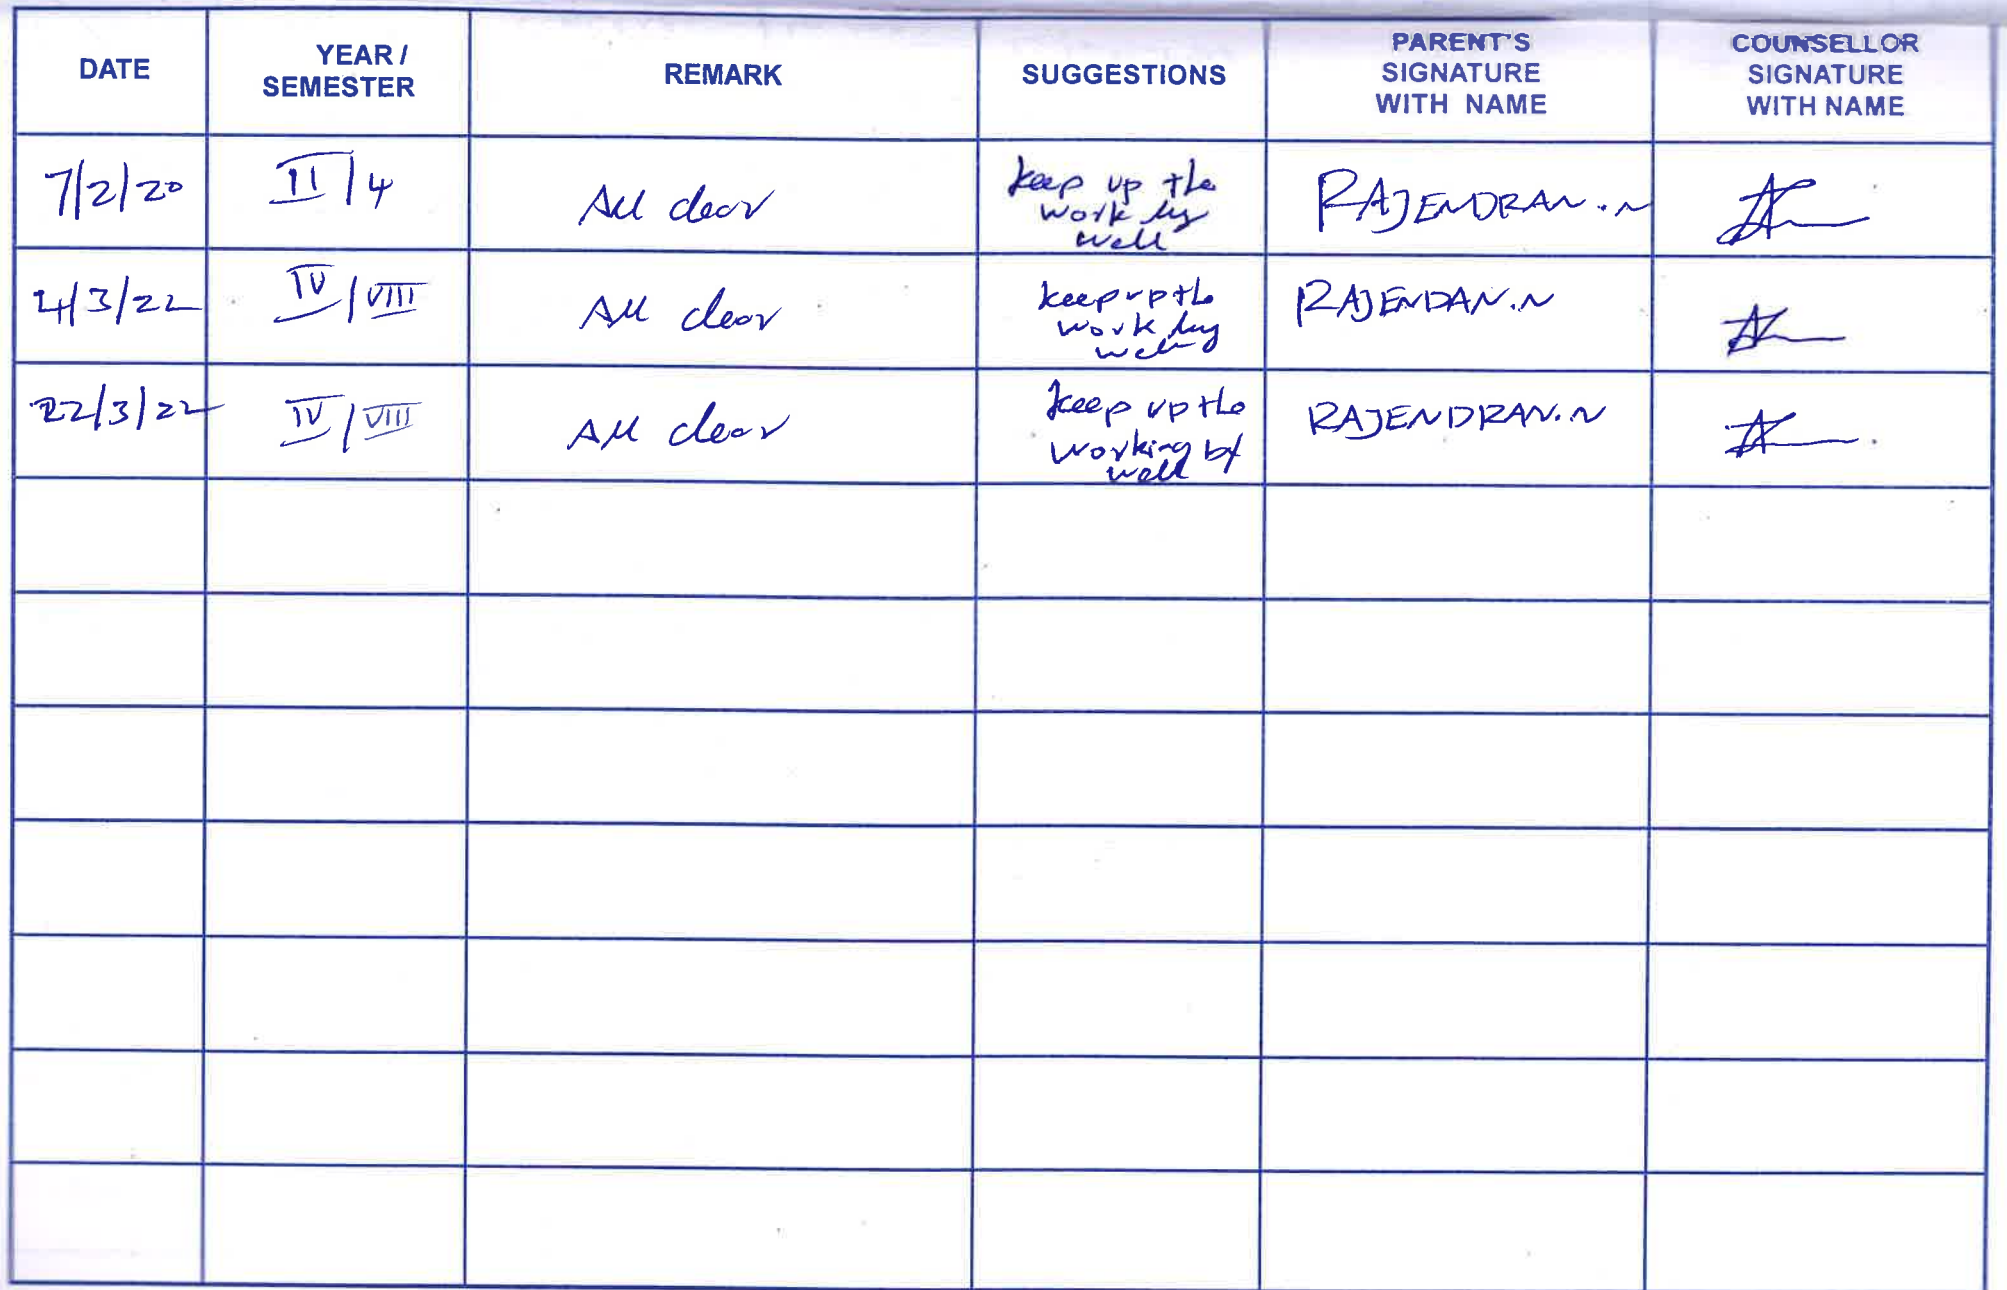 DATE
YEAR /
SEMESTER
REMARK
SUGGESTIONS
PARENT'S
SIGNATURE
WITH NAME
COUNSELLOR
SIGNATURE
WITH NAME
7/2/20
II / 4
All clear
keep up the
work
well
RAJENDRAN.N
4/3/22
IV / VIII
All clear
keep up the
work
RAJENDAN.N
22/3/22
IV / VIII
All clear
keep up the
working
well
RAJENDRAN.N